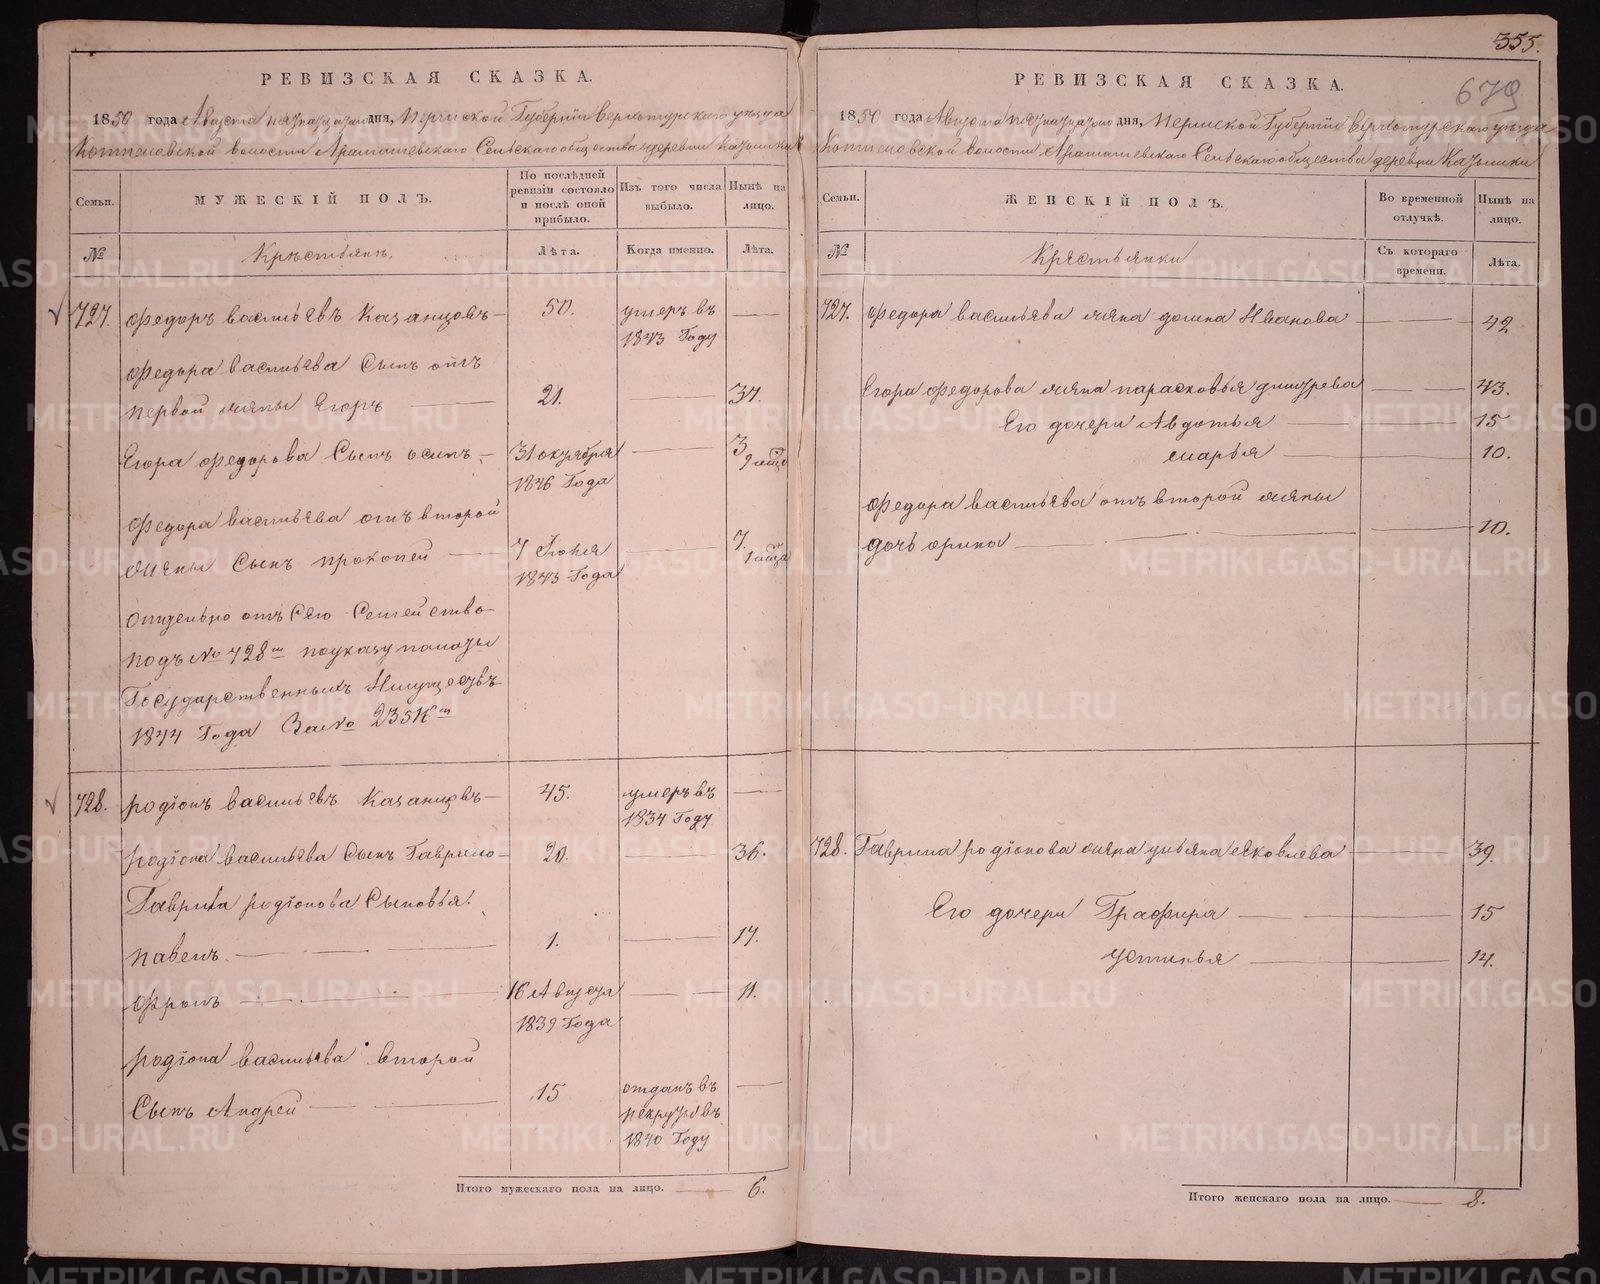 355.
679
РЕВИЗСКАЯ СКАЗКА.
1850 года Августа пятнадцатого дня, Пермской Губернiи Верхотурскаго уѣзда
Коптеловской волости Арамашевскаго Сельскаго общества деревни Казанки
Семьи. МУЖЕСКІЙ ПОЛЪ. По послѣдней ревизіи состояло и послѣ оной прибыло. Изъ того числа выбыло. Нынѣ на лицо.
№ Крестьянъ. Лѣта. Когда именно. Лѣта.
727. Федоръ васильевъ Казанцовъ 50. умеръ въ 1843 Году —
Федора васильева Сынъ отъ
первой жены Егоръ — 21. — 37.
Егора Федорова Сынъ осипъ 31 октября 1846 Года — 3 9 мѣц
Федора васильева отъ второй
жены Сынъ прокопей — 7 Июня 1843 Года — 7. 1 мѣц
отдельно отъ Сего Семейство
подъ № 728м по указу палаты
Государственныхъ Имуществъ
1844 Года За №
728. родiонъ васильевъ Казанцовъ 45. умеръ въ 1834 Году —
родiона васильева Сынъ Гаврило 20. — 36.
Гаврила родiонова Сыновья:
павелъ — 1. — 17.
Фролъ — 16 Августа 1839 Года — 11.
родiона васильева второй
Сынъ Андрей — 15 отданъ въ рекруты въ 1840 Году —
Итого мужескаго пола на лицо. — 6.
РЕВИЗСКАЯ СКАЗКА.
1850 года Августа пятнадцатого дня, Пермской Губернiи Верхотурскаго уѣзда
Коптеловской волости Арамашевскаго Сельскаго общества деревни Казанки
Семьи. ЖЕНСКІЙ ПОЛЪ. Во временной отлучкѣ. Нынѣ на лицо.
№ Крестьянки Съ котораго времени. Лѣта.
727. Федора васильева жена домна Иванова — 42
Егора Федорова жена парасковья — 43.
Его дочери Авдотья — 15
марья — 10.
Федора васильева отъ второй жены
дочь орина — 10.
728. Гаврила родiонова жена ульяна Яковлева — 39.
Его дочери Графира — 15
устинья — 14.
Итого женскаго пола на лицо. — 8.
METRIKI.GASO-URAL.RU